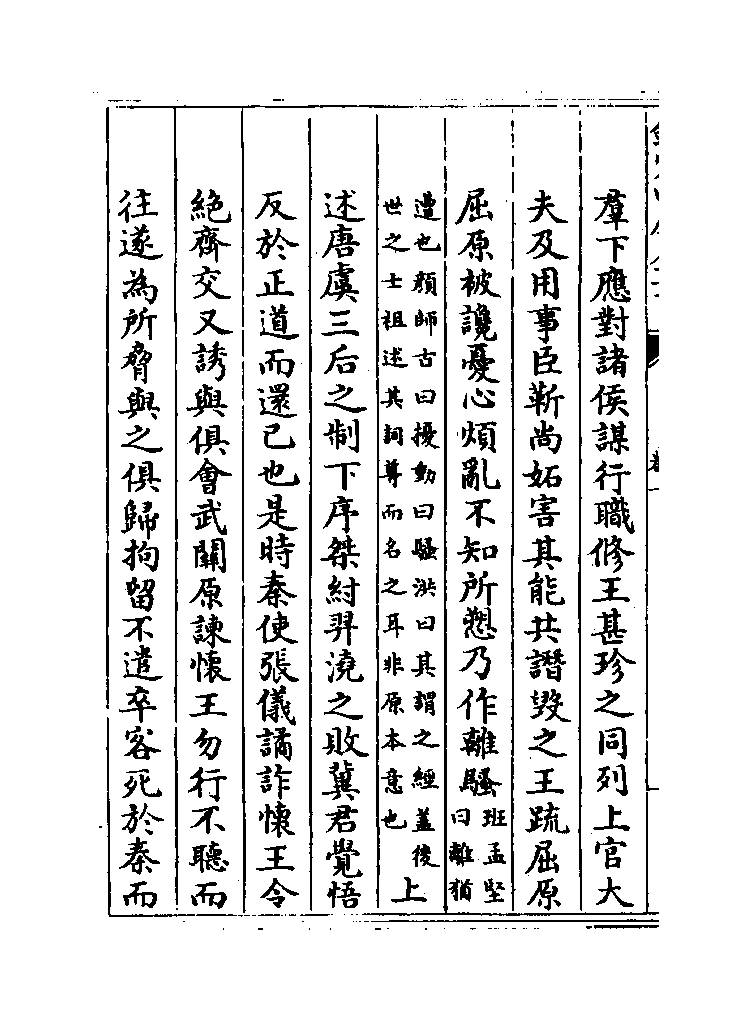 羣下應對諸侯謀行職修王甚珍之同列上官大
夫及用事臣靳尚妬害其能共譖毁之王疏屈原
屈原被讒憂心煩亂不知所愬乃作離騷班孟堅
曰離猶
遭也顔師古曰擾動曰騷洪曰其謂之經蓋後
世之士祖述其詞尊而名之耳非原本意也
上
述唐虞三后之制下序桀紂羿澆之敗冀君覺悟
反於正道而還己也是時秦使張儀譎詐懷王令
絶齊交又誘與俱會武關原諫懷王勿行不聽而
往遂為所脅與之俱歸拘留不遣卒客死於秦而